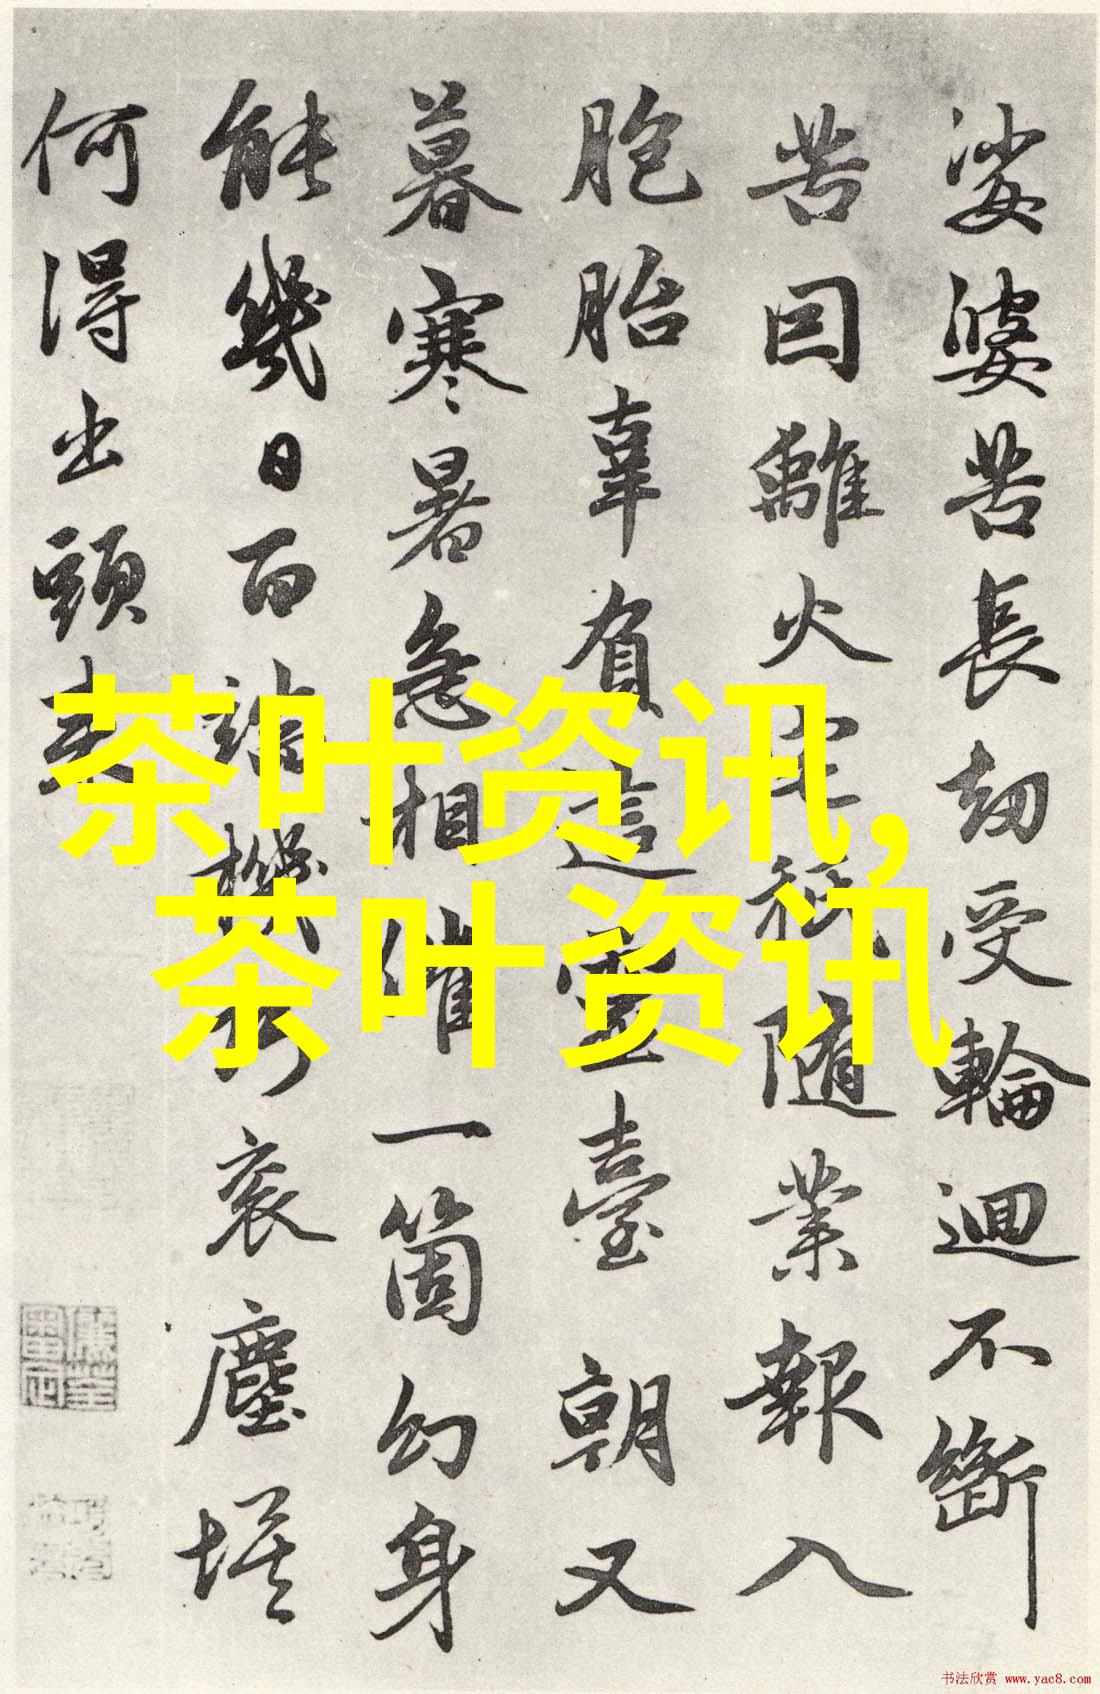 娑婆苦長劫受輪迴不斷
苦因離火宅秖随業報入
胞胎辜負這靈臺朝又
暮寒暑急相催一箇幻身
能幾日百般機巧衮塵埃
何得出頭来
茶叶资讯,
茶叶资讯
书法欣赏 www.yac8.com